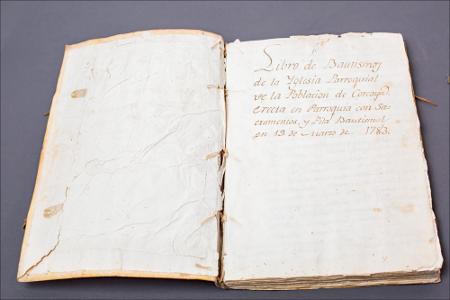 Libro de Bautismos
de la Yglesia Parroquial
de la Poblacion de
erecta en Parroquia con Sa-
cramentos, y Pila Bautismal
en 19 de Marzo de 1783.